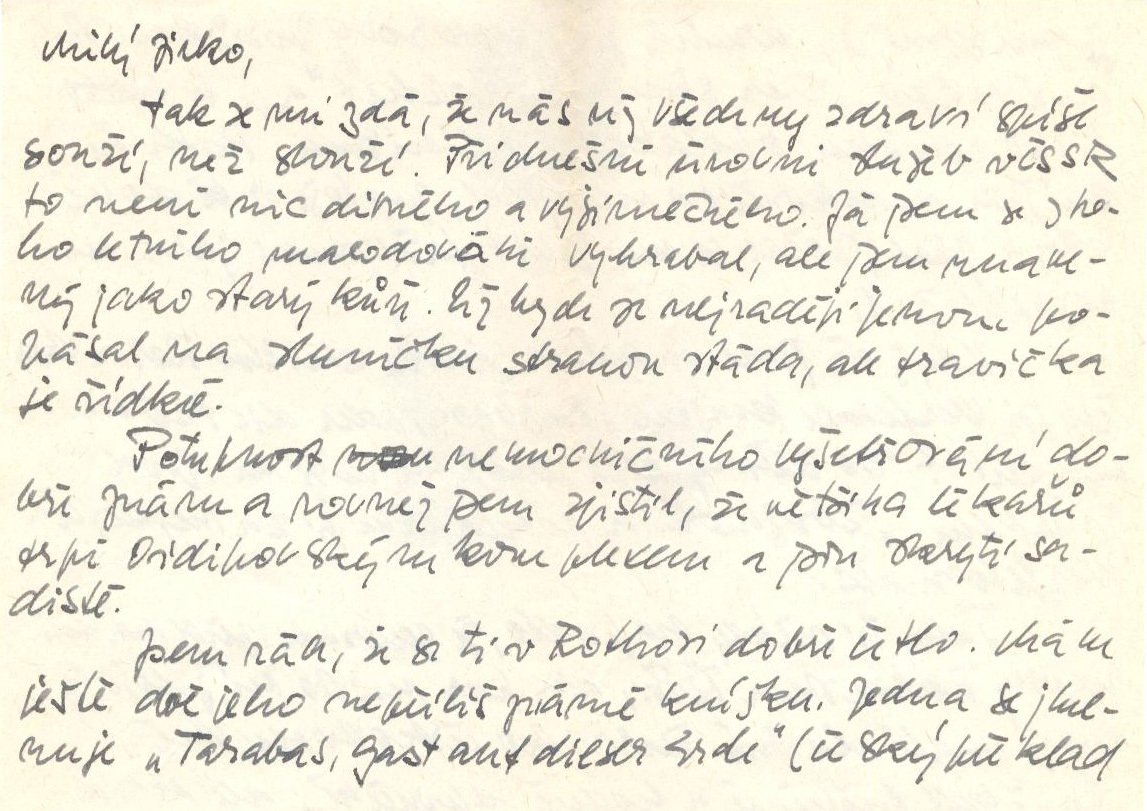 Milý Jirko,
tak se mi zdá, že nás už všechny zdraví spíše
souží, než slouží. Při dnešní úrovni služeb v ČSSR
to není nic divného a vyjímečného. Já jsem se z to-
ho letního marodování vyhrabal, ale jsem unave-
ný jako starý kůň. Už bych se nejraději jenom po-
pásal na sluníčku stranou stáda, ale travička
je řídká.
Potupnost nemocničního vyšetřování do-
bře znám a rovněž jsem zjistil, že většina lékařů
trpí Oidipovským komplexem a jsou skrytí sa-
disté.
Jsem rád, že se ti v Rothovi dobře četlo. Mám
ještě dvě jeho nepříliš známé knížky. Jedna se jme-
nuje „Tarabas, Gast auf dieser Erde" (český překlad